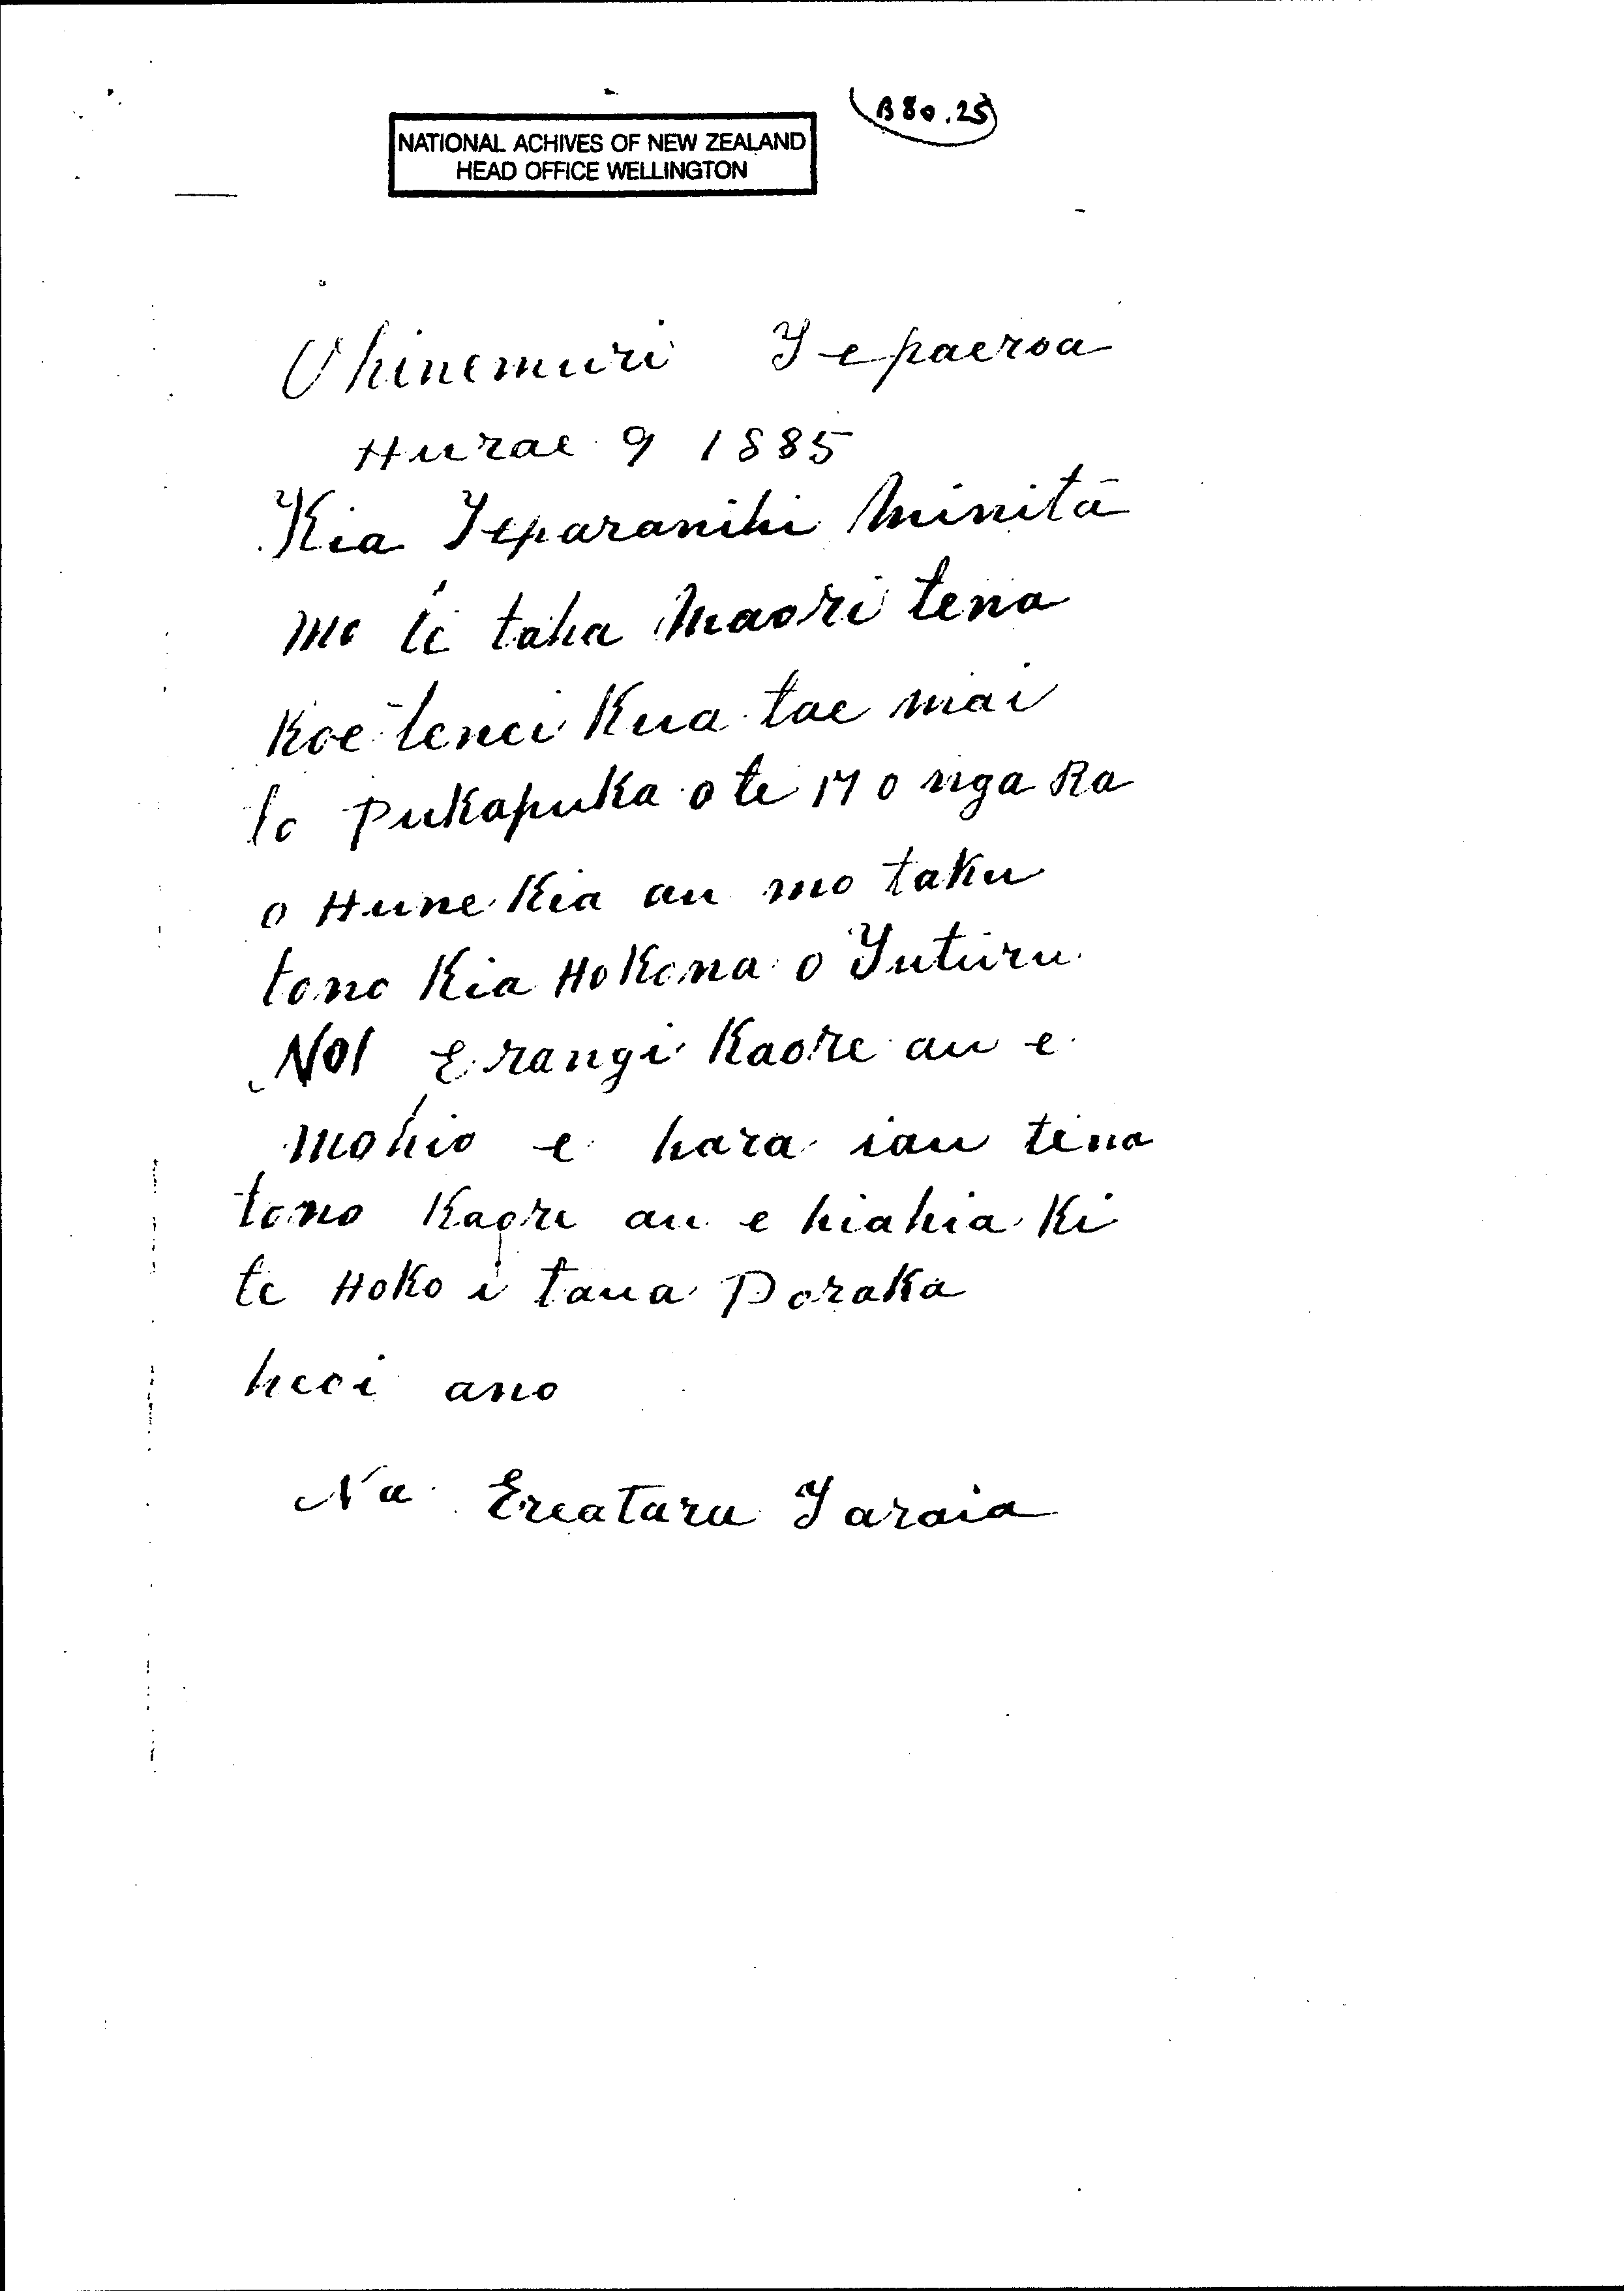 B80.25
NATIONAL ACHIVES OF NEW ZEALAND
HEAD OFFICE WELLINGTON
Ohinemuri Tepaeroa
Hurae 9 1885
Kia Teparanihi Minita
mo te taha Maori tena
Koe tenei Kua tae mai
to Pukapuka o te 17 o nga Ra
o Hune Kia au mo taku
tono Kia Hokona o Tuturu
No1 Erangi Kaore au e
mohio e hara iau tena
tono Kaore au e hiahia Ki
te Hoko i taua Poraka
heoi ano
Na Ereatara Taraia